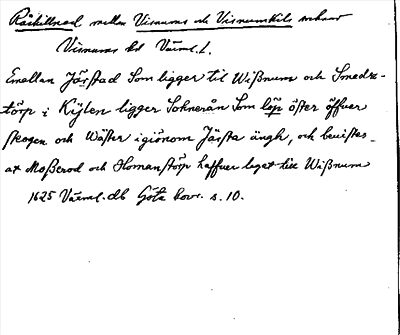 Råskillnad mellan Visnums och Visnumskils socknar
Visnums hd Värml. l.
Emellan Järstad Som ligger til Wißnum och Smedz-
törp i Kijlen ligger Soknerån Som löp öster öffuer
skogen och Wäster igiönom Järsta ängh, och beuistes
at Moßerod och Homanstörp haffuer leget till Wißnum
1625 Värml. db Göta hovr. s. 10.